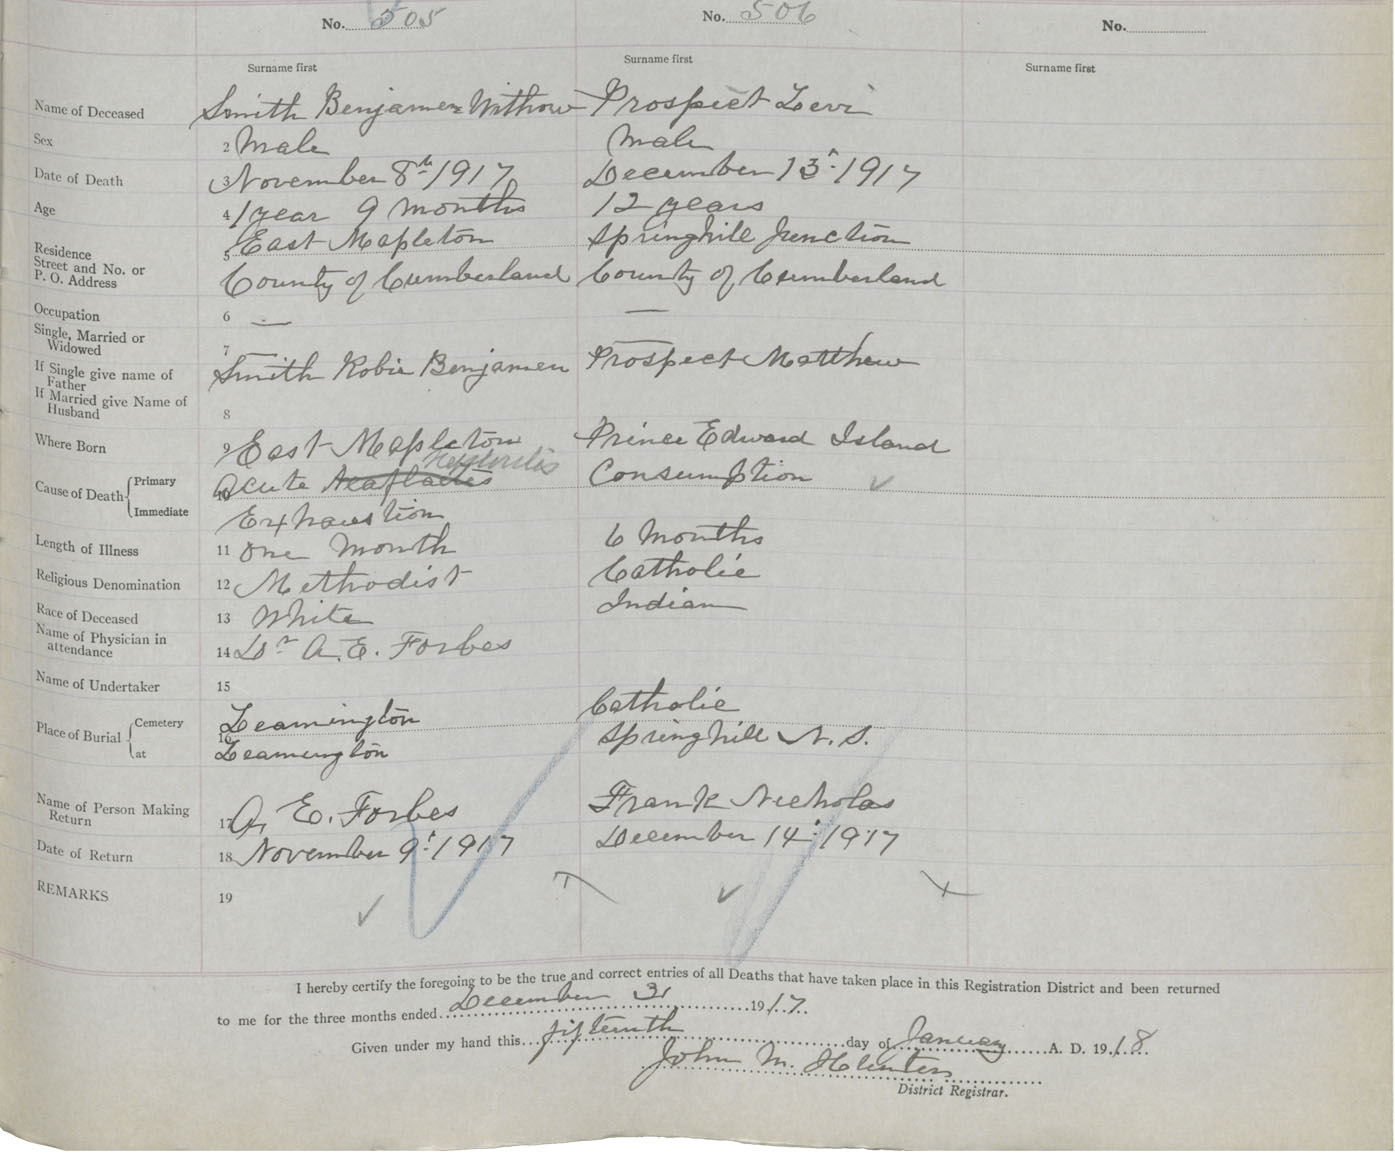 No. 505 No. 506 No.
Surname first Surname first Surname first
Name of Deceased Smith Benjamen Prospect Levi
Sex 2 Male Male
Date of Death 3 November 8th 1917 December 13th 1917
Age 4 1 year 9 months 12 years
Residence 5 East Mapleton Springhill Junction
Street and No. or
P. O. Address County of Cumberland County of Cumberland
Occupation 6 — —
Single, Married or
Widowed 7 — —
If Single give name of Smith Robie Benjamen Prospect Matthew
Father
If Married give Name of
Husband 8
Where Born 9 East Mapleton Prince Edward Island
Cause of Death Primary 10 Acute Consumption
Immediate Exhaustion
Length of Illness 11 One Month 6 Months
Religious Denomination 12 Methodist Catholic
Race of Deceased 13 White Indian
Name of Physician in
attendance 14 Dr A. E. Forbes
Name of Undertaker 15
Place of Burial Cemetery 16 Leamington Catholic
at Leamington Springhill N. S.
Name of Person Making
Return 17 A. E. Forbes Frank Nicholas
Date of Return 18 November 9th 1917 December 14th 1917
REMARKS 19
I hereby certify the foregoing to be the true and correct entries of all Deaths that have taken place in this Registration District and been returned
to me for the three months ended December 31 1917.
Given under my hand this fifteenth day of January A. D. 1918.
John M. Hunter
District Registrar.